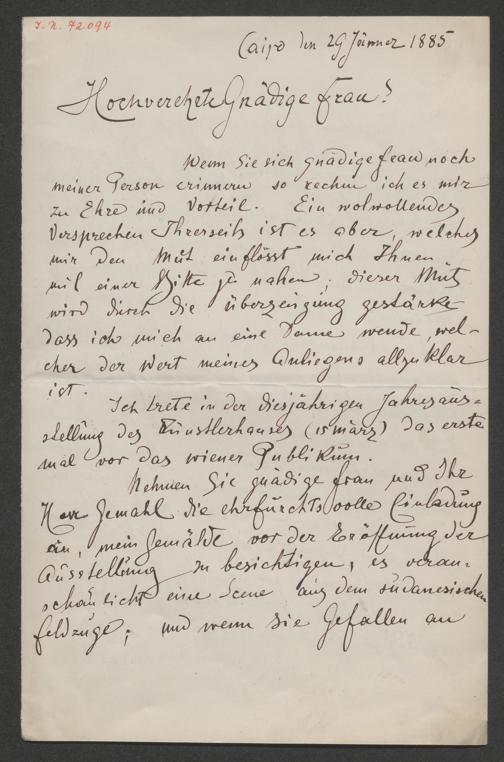 I.N. 72094
Cairo den 29 Jänner 1885
Hochverehrte Gnädige Frau!
Wenn Sie sich gnädige frau noch
meiner Person erinnern so rechne ich es mir
zu Ehre und Vorteil. Ein wolwollendes
Versprechen Ihrerseits ist es aber, welches
mir den Mut einflösst mich Ihnen
mit einer Bitte zu nahen; dieser Mut
wird durch die überzeugung gestärkt
dass ich mich an eine Dame wende, wel-
cher der Wert meines Anliegens allzuklar
ist.
Ich trete in der diesjährigen Jahresaus=
stellung des Künstlerhauses (15 märz) das erste
mal vor das wiener Publikum.
Nehmen Sie gnädige frau und Ihr
Herr Gemahl die ehrfurchtsvolle Einladung
an, mein Gemälde vor der Eröffnung der
Ausstellung zu besichtigen, es veran-
schaulicht eine Scene aus dem sudanesischen
feldzuge; und wenn Sie Gefallen an